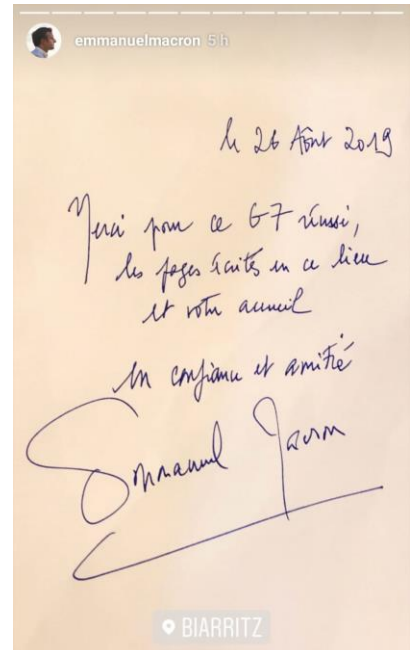 emmanuelmacron 5 h
le 26 Août 2019
Merci pour ce G7 réussi,
les pages écrites en ce lieu
et votre accueil
en confiance et amitié
Emmanuel Macron
BIARRITZ